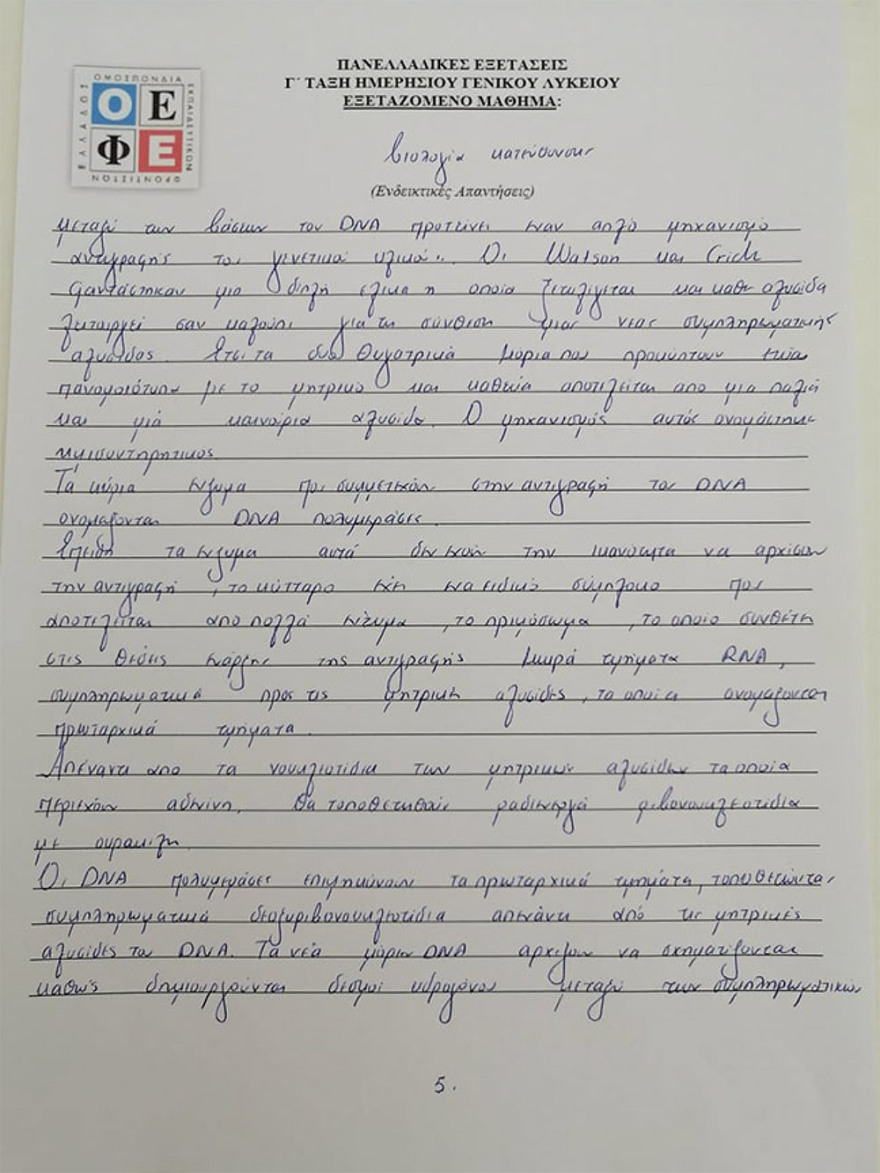 ΟΜΟΣΠΟΝΔΙΑ
ΕΚΠΑΙΔΕΥΤΙΚΩΝ
ΦΡΟΝΤΙΣΤΩΝ
ΕΛΛΑΔΟΣ
ΟΕ
ΦΕ
ΠΑΝΕΛΛΑΔΙΚΕΣ ΕΞΕΤΑΣΕΙΣ
Γ΄ ΤΑΞΗ ΗΜΕΡΗΣΙΟΥ ΓΕΝΙΚΟΥ ΛΥΚΕΙΟΥ
ΕΞΕΤΑΖΟΜΕΝΟ ΜΑΘΗΜΑ:
βιολογία κατεύθυνσης
(Ενδεικτικές Απαντήσεις)
μεταξύ των βάσεων του DNA προτείνει έναν απλό μηχανισμό
αντιγραφής του γενετικού υλικού". Οι Watson και Crick
φαντάστηκαν μια διπλή έλικα η οποία ξετυλίγεται και κάθε αλυσίδα
λειτουργεί σαν καλούπι για τη σύνθεση μιας νέας συμπληρωματικής
αλυσίδας. Έτσι τα δυο θυγατρικά μόρια που προκύπτουν είναι
πανομοιότυπα με το μητρικό και καθένα αποτελείται απο μια παλιά
και μιά καινούρια αλυσίδα. Ο μηχανισμός αυτός ονομάστηκε
ημισυντηρητικός.
Τα κύρια ένζυμα που συμμετέχουν στην αντιγραφή του DNA
ονομάζονται DNA πολυμεράσες.
Επειδή τα ένζυμα αυτά δεν έχουν την ικανότητα να αρχίσουν
την αντιγραφή, το κύτταρο έχει ένα ειδικό σύμπλοκο που
αποτελείται από πολλά ένζυμα, το πριμόσωμα, το οποίο συνθέτει
στις θέσεις έναρξης της αντιγραφής μικρά τμήματα RNA,
συμπληρωματικά προς τις μητρικές αλυσίδες, τα οποία ονομάζονται
πρωταρχικά τμήματα.
Απέναντι απο τα νουκλεοτίδια των μητρικών αλυσίδων τα οποία
περιέχουν αδενίνη, θα τοποθετηθούν ραδιενεργά ριβονουκλεοτίδια
με ουρακίλη.
Οι DNA πολυμεράσες επιμηκύνουν τα πρωταρχικά τμήματα, τοποθετώντας
συμπληρωματικά δεοξυριβονουκλεοτίδια απέναντι από τις μητρικές
αλυσίδες του DNA. Τα νέα μόρια DNA αρχίζουν να σχηματίζονται
καθώς δημιουργούνται δεσμοί υδρογόνου μεταξύ των συμπληρωματικών
5.